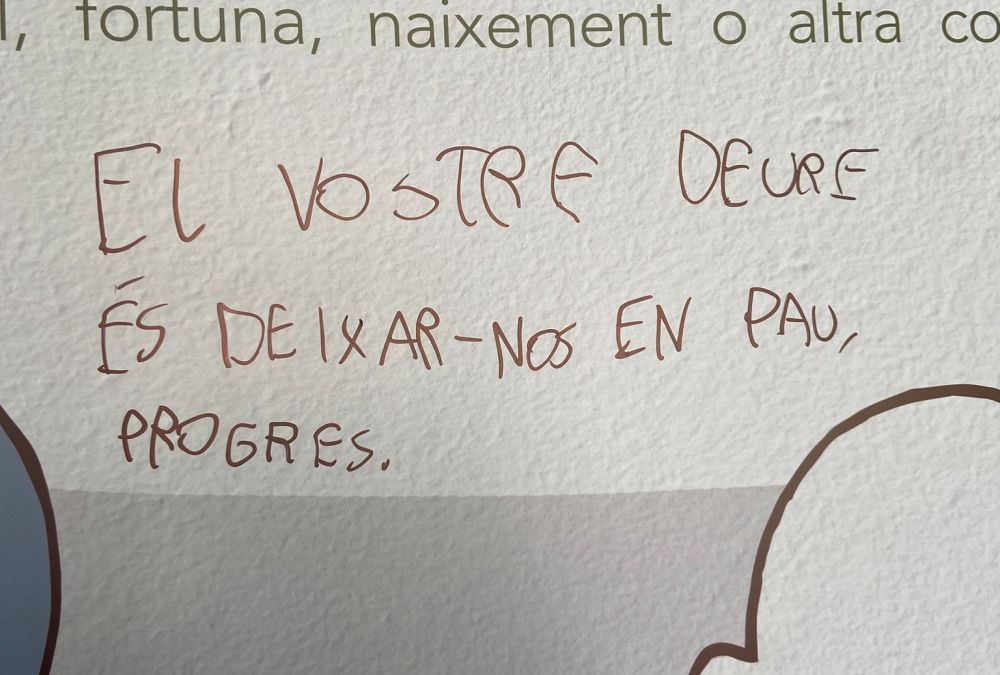 l, fortuna, naixement o altra co
El VOSTRE DEURE
ÉS DEIXAR-NOS EN PAU,
PROGRES.